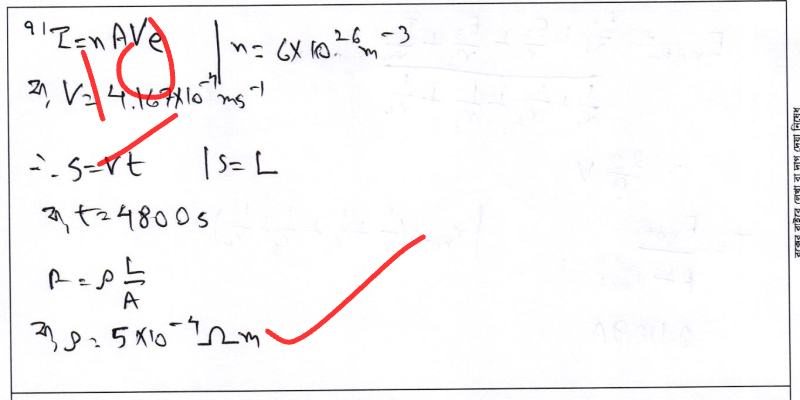 ৭। I = nAVe | n = 6×10²⁶ m⁻³
বা, V = 4.167×10⁻⁴ ms⁻¹
∴ s = vt | s = L
বা, t = 4800s
R = ρ L/A
বা, ρ = 5×10⁻⁴ Ωm
10
বক্সের বাইরে লেখা বা দাগ দেয়া নিষেধ